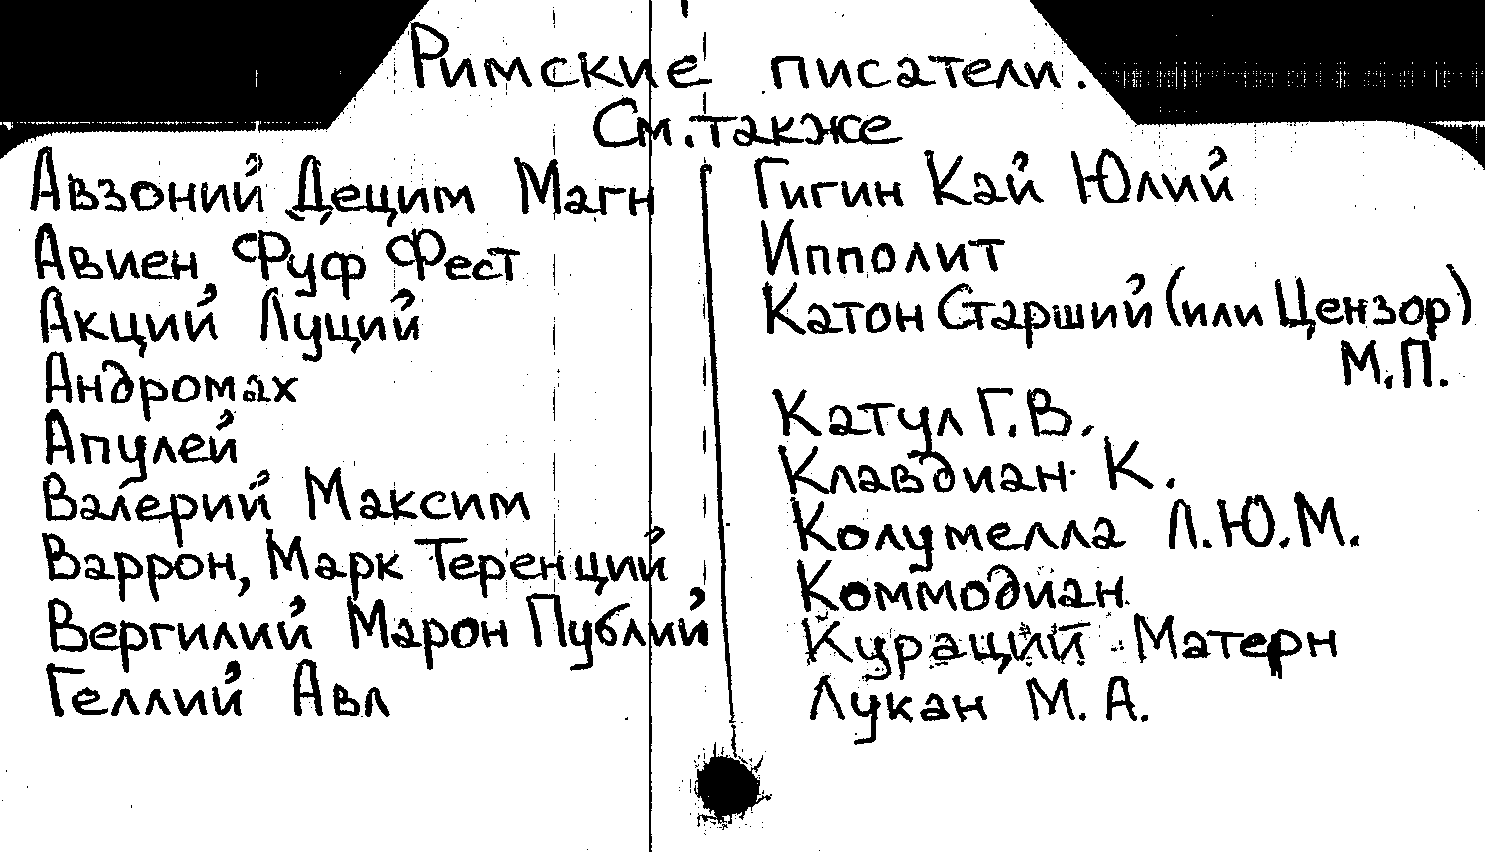 Римские писатели.
См. также
Авзоний Децим Магн
Авиен Фуф Фест
Акций Луций
Андромах
Апулей
Валерий Максим
Варрон, Марк Теренций
Вергилий Марон Публий
Геллий Авл
Гигин Кай Юлий
Ипполит
Катон Старший (или Цензор)
М.П.
Катул Г.В.
Клавдиан К.
Колумелла Л.Ю.М.
Коммодиан
Кураций Матерн
Лукан М. А.